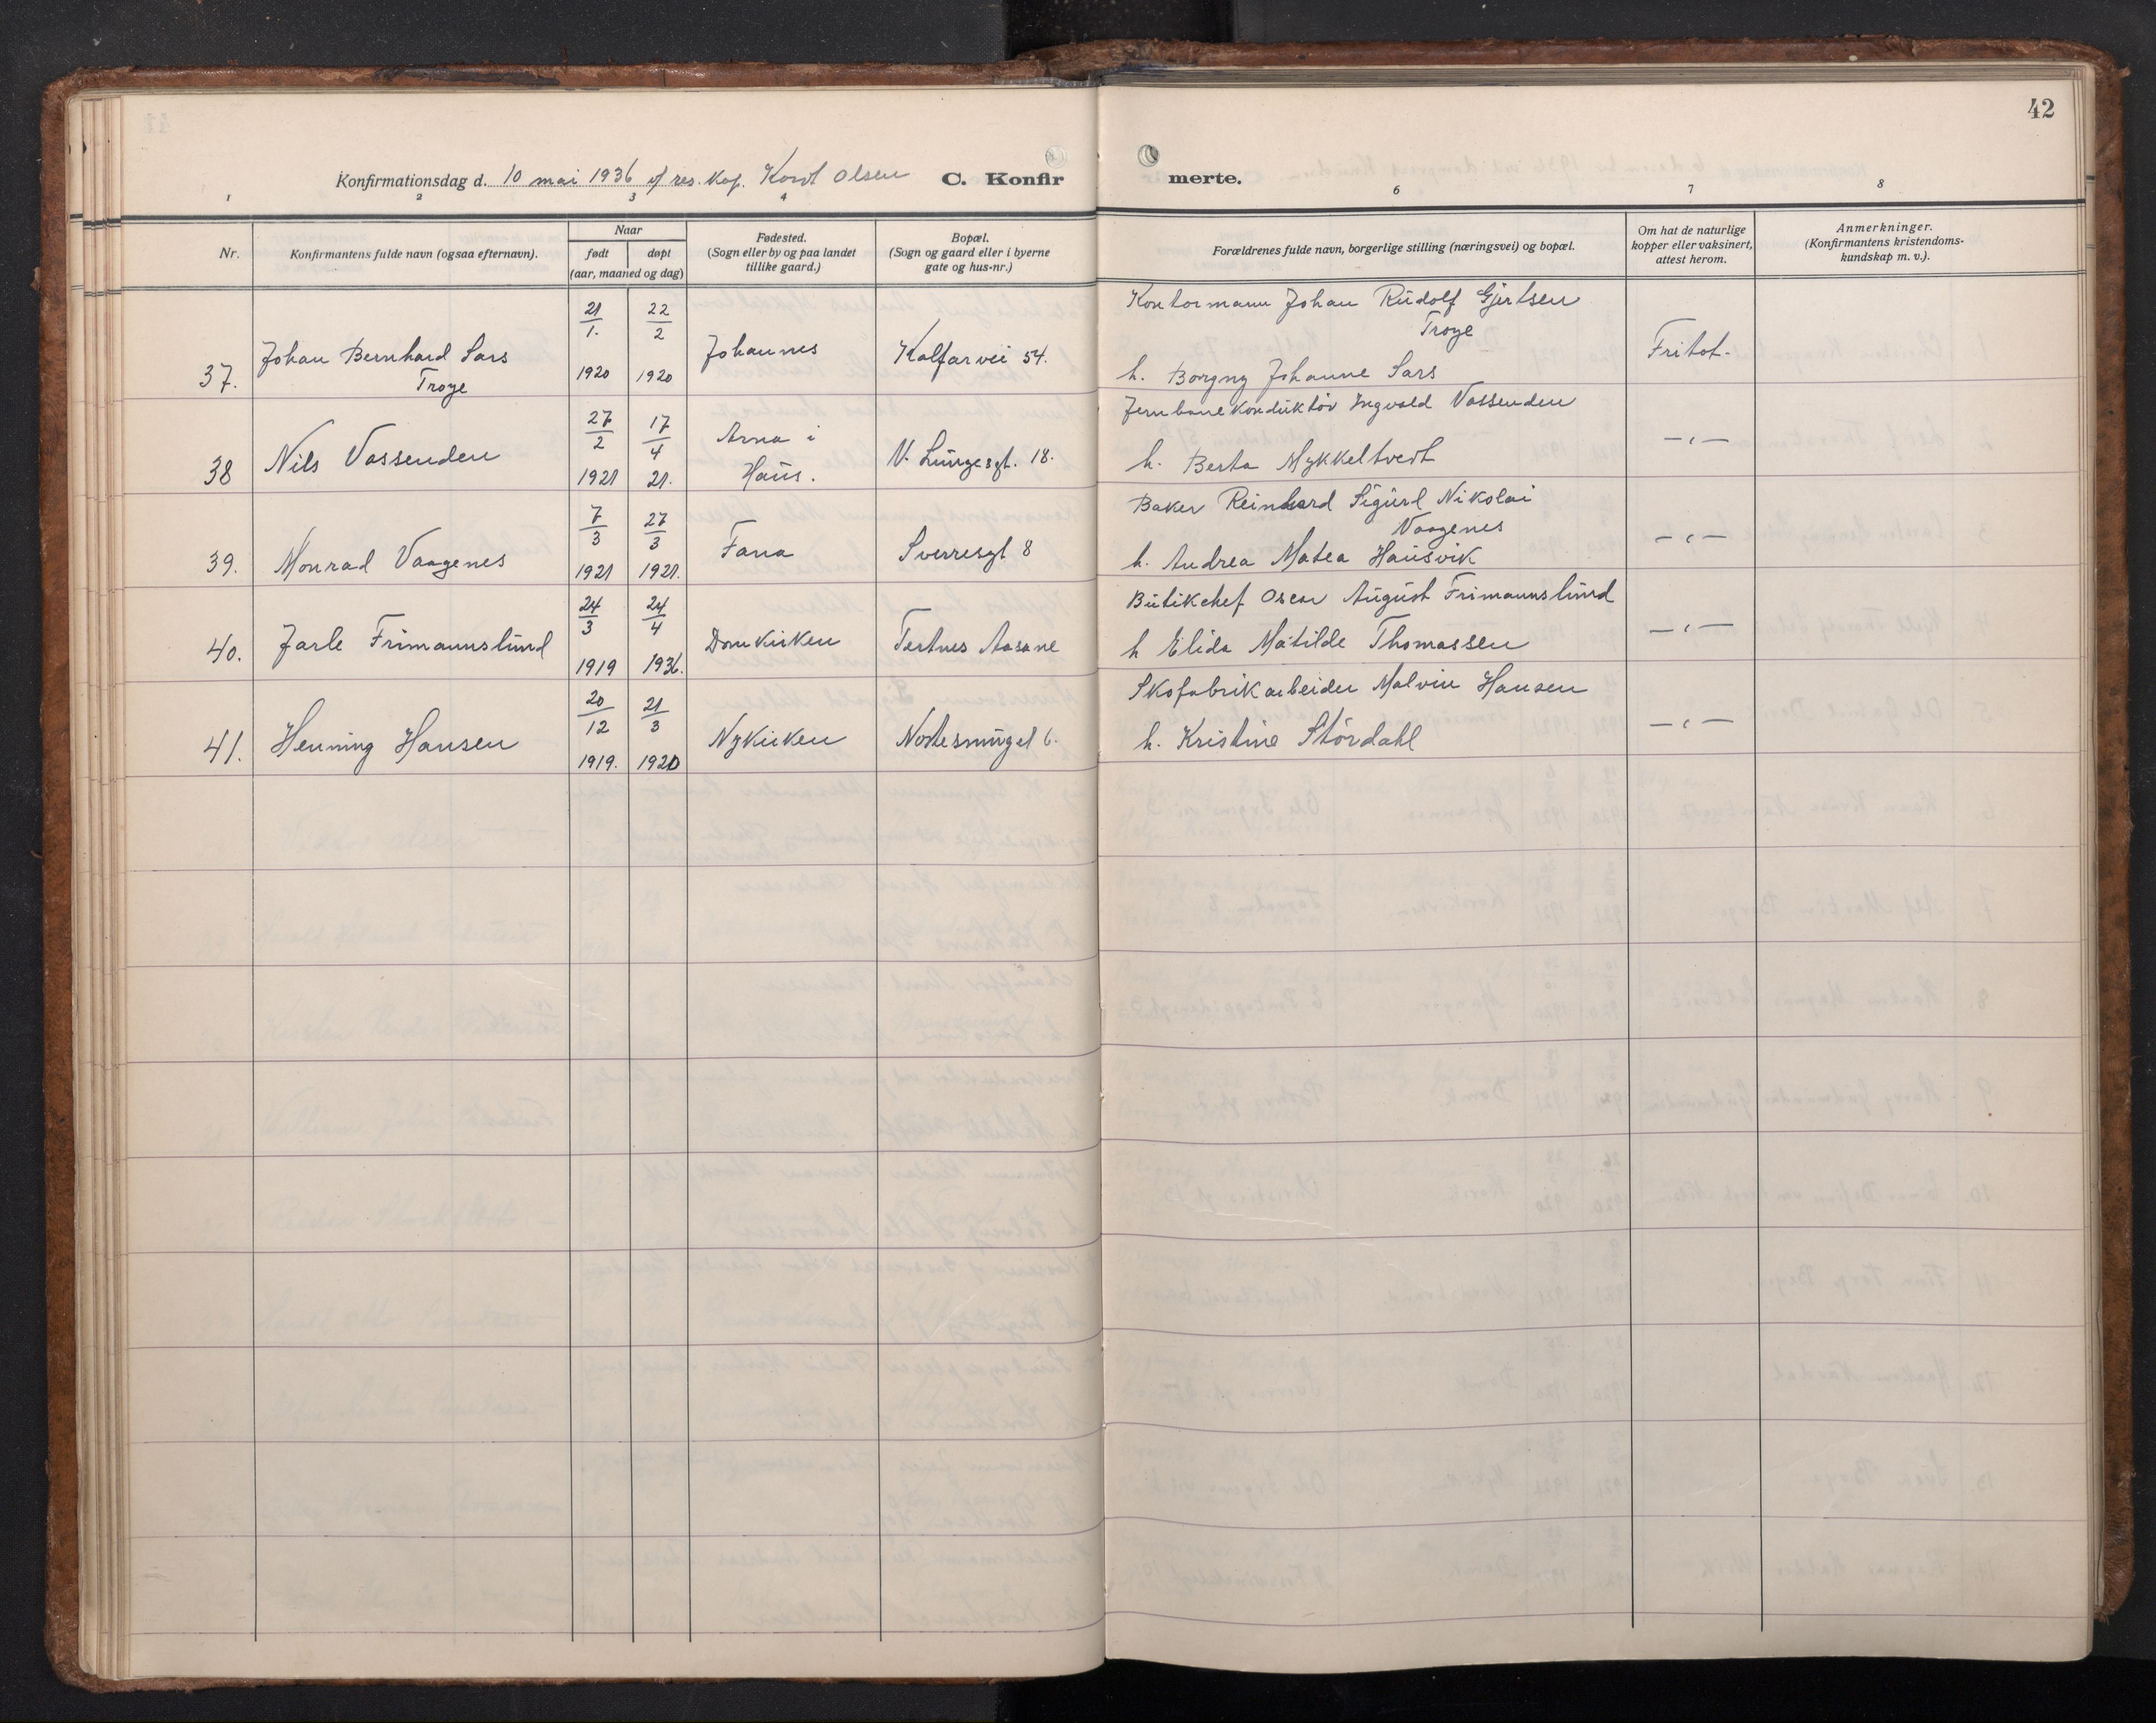 42
Konfirmationsdag d. 10 mai 1936 v/ res. kap. Kordt Olsen C. Konfirmerte.
1 2 3 4 6 7 8
Nr.
Konfirmantens fulde navn (ogsaa efternavn).
Naar
født døpt
(aar, maaned og dag)
Fødested.
(Sogn eller by og paa landet
tillike gaard.)
Bopæl.
(Sogn og gaard eller i byerne
gate og hus-nr.)
Forældrenes fulde navn, borgerlige stilling (næringsvei) og bopæl.
Om hat de naturlige
kopper eller vaksinert,
attest herom.
Anmerkninger.
(Konfirmantens kristendoms-
kundskap m. v.).
37. Johan Bernhard Sars
Troye
21/1. 1920
22/2 1920
Johannes
Kalfarvei 54.
Kontormann Johan Rudolf Gjertsen
Troye
h. Borgny Johanne Sars
Fritat.
38 Nils Vassenden
27/2 1921
17/4 21.
Arna i
Haus.
N. Lungesgt. 18.
Jernbanekonduktør Ingvald Vassenden
h. Berta Mykkeltvedt
— " —
39. Monrad Vaagenes
7/3 1921
27/3 1921.
Fana
Sverresgt 8
Baker Reinhard Sigurd Nikolai
Vaagenes
h. Andrea Matea Hausvik
— " —
40. Jarle Frimannslund
24/3 1919
24/4 1936.
Domkirken
Tertnes Aasane
Butikchef Oscar August Frimannslund
h Elida Matilde Thomassen
— " —
41. Henning Hansen
20/12 1919.
21/3 1920
Nykirken
Nostesmuget 6.
Skofabrikarbeider Malvin Hansen
h. Kristine Stördahl
— " —